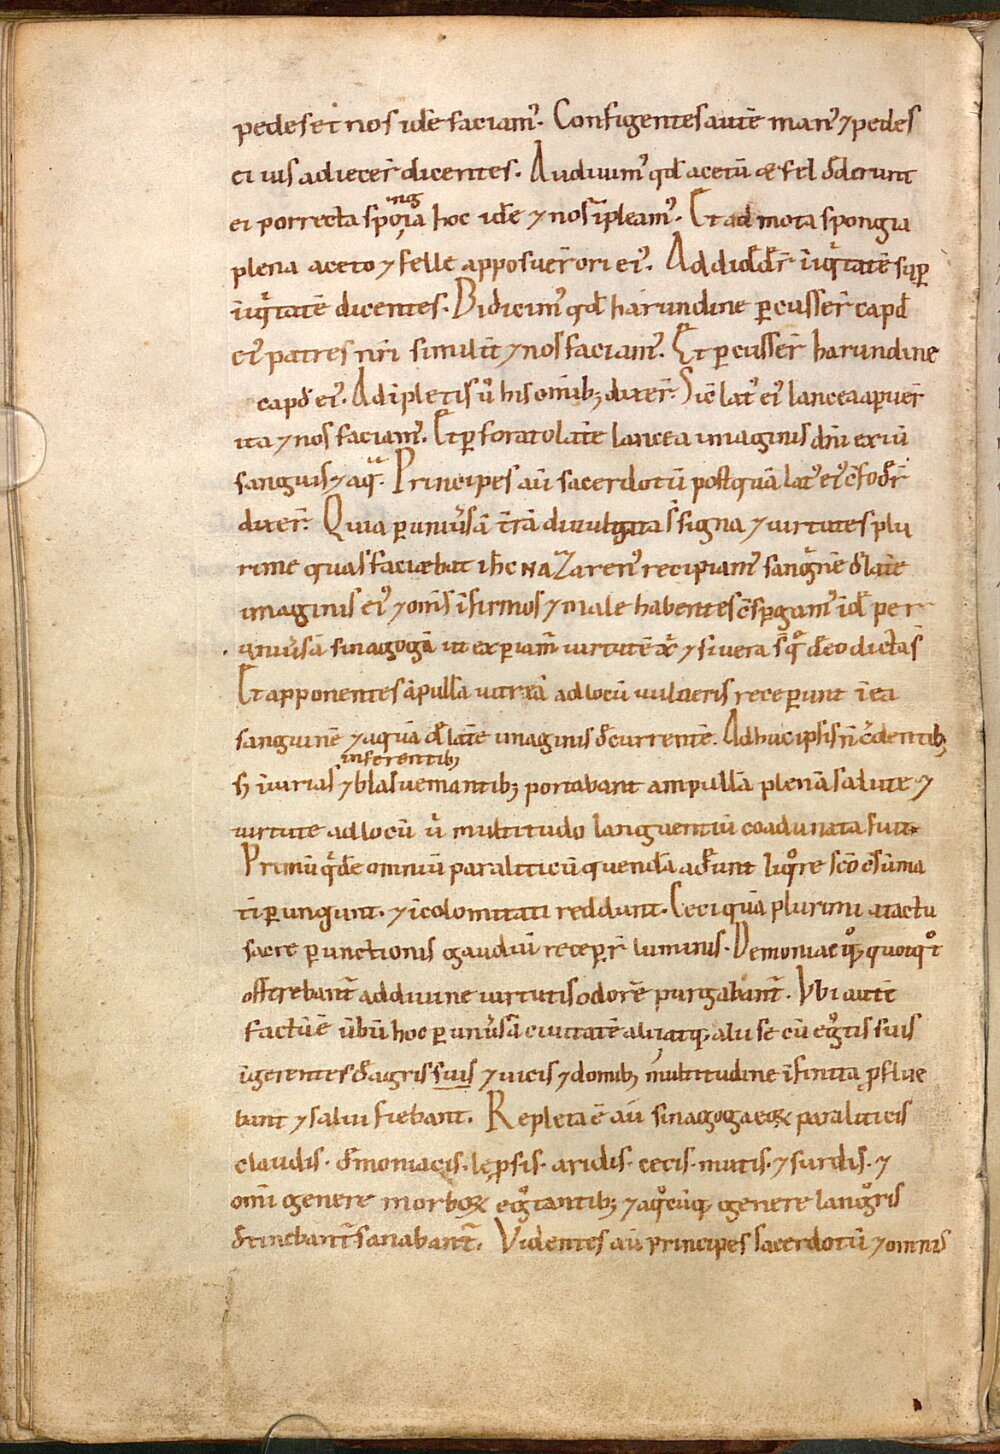 pedes et nos idē faciam᷒. Configentes autē man᷒ ⁊ pedes
ei ius adiecer̄ dicentes. Audiuim᷒ qđ acetū & fel dederunt
ei porrecta spongia hoc idē ⁊ nos īpleam᷒. Et ad mota spongia
plena aceto ⁊ felle apposuer̄ ori ei᷒. Addider̄ īiq̇tatē sup̄
īiq̇tatē dicentes. Didicim᷒ qđ harundine ꝑcusser̄ capđ
ei᷒ patres nr̄i similit̄ ⁊ nos faciam᷒. Et ꝑcusser̄ harundine
capđ ei᷒. Adīpletis ū his omīb; dixer̄. Sič lat᷒ ei᷒ lancea apuer̄
ita ⁊ nos faciam᷒. Et ꝑforato latē lancea imaginis dn̄i exiū
sanguis ⁊ aq̄. Principes aū sacerdotū postquā lat᷒ ei᷒ c̄foder̄
dixer̄. Quia ꝑ uniūsā t̄rā diuulgata s̄ signa ⁊ uirtutes plu
rime quas faciebat ih̄c naZaren᷒ recipiam᷒ sanguinē d̄ latē
imaginis ei᷒ ⁊ om̄s īfirmos ⁊ male habentes c̄sꝑgam᷒ īd̄ per
uniūsā sinagogā ut exꝑiam̄ uirtutē x̄ ⁊ si uera s̄ q̇ d̄ eo dicta s̄
Et apponentes āpullā uitreā ad locū uulneris receꝑunt ī ea
sanguinē ⁊ aquā d̄ latē imaginis d̄currentē. Adhuc ipsis n̄ c̄dentib;
s; īiurias inferentib; ⁊ blasuemantib; portabant ampullā plenā salute ⁊
uirtute ad locū ū multitudo languentiū coadunata fuit.
Primū q̇dē omniū paraliticū quendā adducunt liq̊re sc̄o c̄sūma
ti ꝑungunt. ⁊ īcolomitati reddunt. Ceci quā plurimi a tactu
sacre ꝑunctionis gaudiū receper̄ luminis. Demoniaci q̊q; quotq̊t
offerebant̄ ad diuine uirtutis odorē purgabant̄. Vbi autē
factū ē ūbū hoc ꝑ uniūsā ciuitatē alii atq; alii se cū egr̊tis suis
īgerentes d̄ agris suis ⁊ uicis ⁊ domib; multitudine īfinita ꝓflue
bant ⁊ salui fiebant. Repleta ē aū sinagoga eoꝝ paraliticis
claudis. d̄moniacis. leprosis. aridis. cecis. mutis. ⁊ surdis. ⁊
omī genere morboꝝ egr̊tantib; ⁊ a q̊cūq; genere langr̊is
d̄tinebant̄ sanabant̄. Videntes aū principes sacerdotū ⁊ omnis